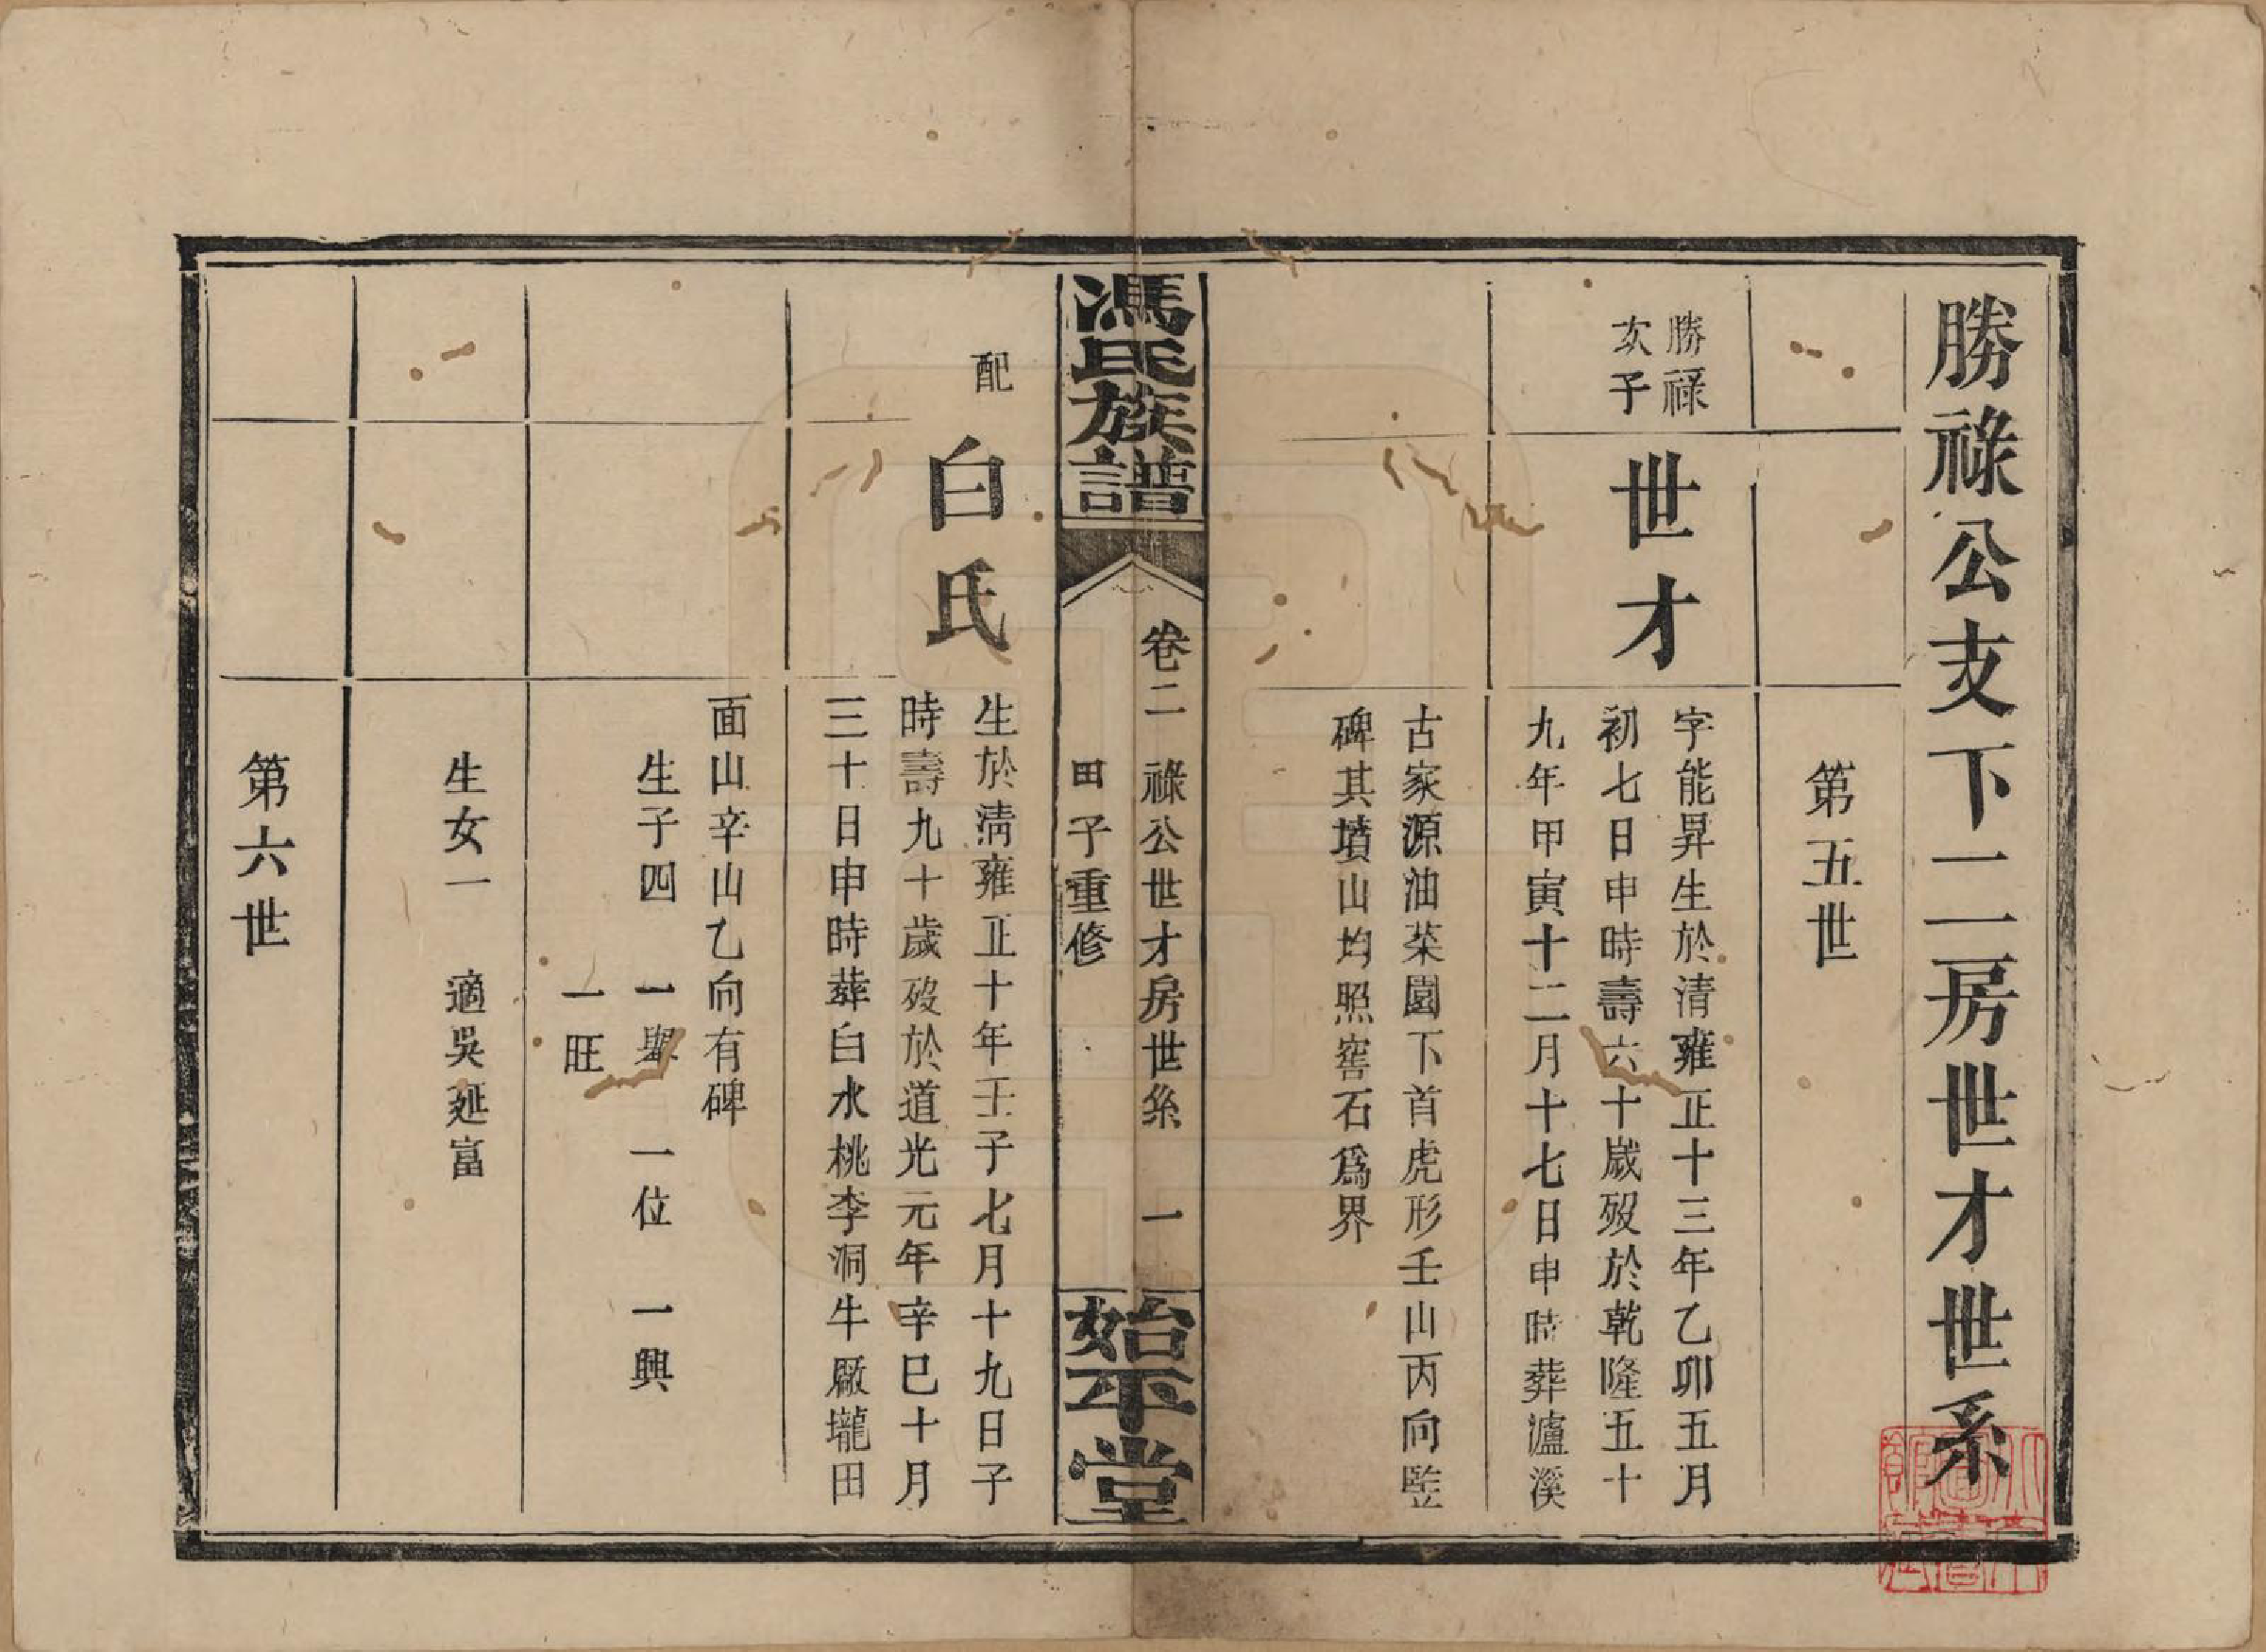 勝祿公支下二房世才世系
第五世
勝祿
次子
世才
字能昇生於清雍正十三年乙卯五月
初七日申時壽六十歲歿於乾隆五十
九年甲寅十二月十七日申時葬瀘溪
古家源油菜園下首虎形壬山丙向竪
碑其墳山均照窖石爲界
馮氏族譜
卷二 祿公世才房世系 一
甲子重修
始平堂
配
白氏
生於清雍正十年壬子七月十九日子
時壽九十歲歿於道光元年辛巳十月
三十日申時葬白水桃李洞牛廠壠田
面山辛山乙向有碑
生子四 一舉 一位 一興
一旺
生女一 適吳延富
第六世